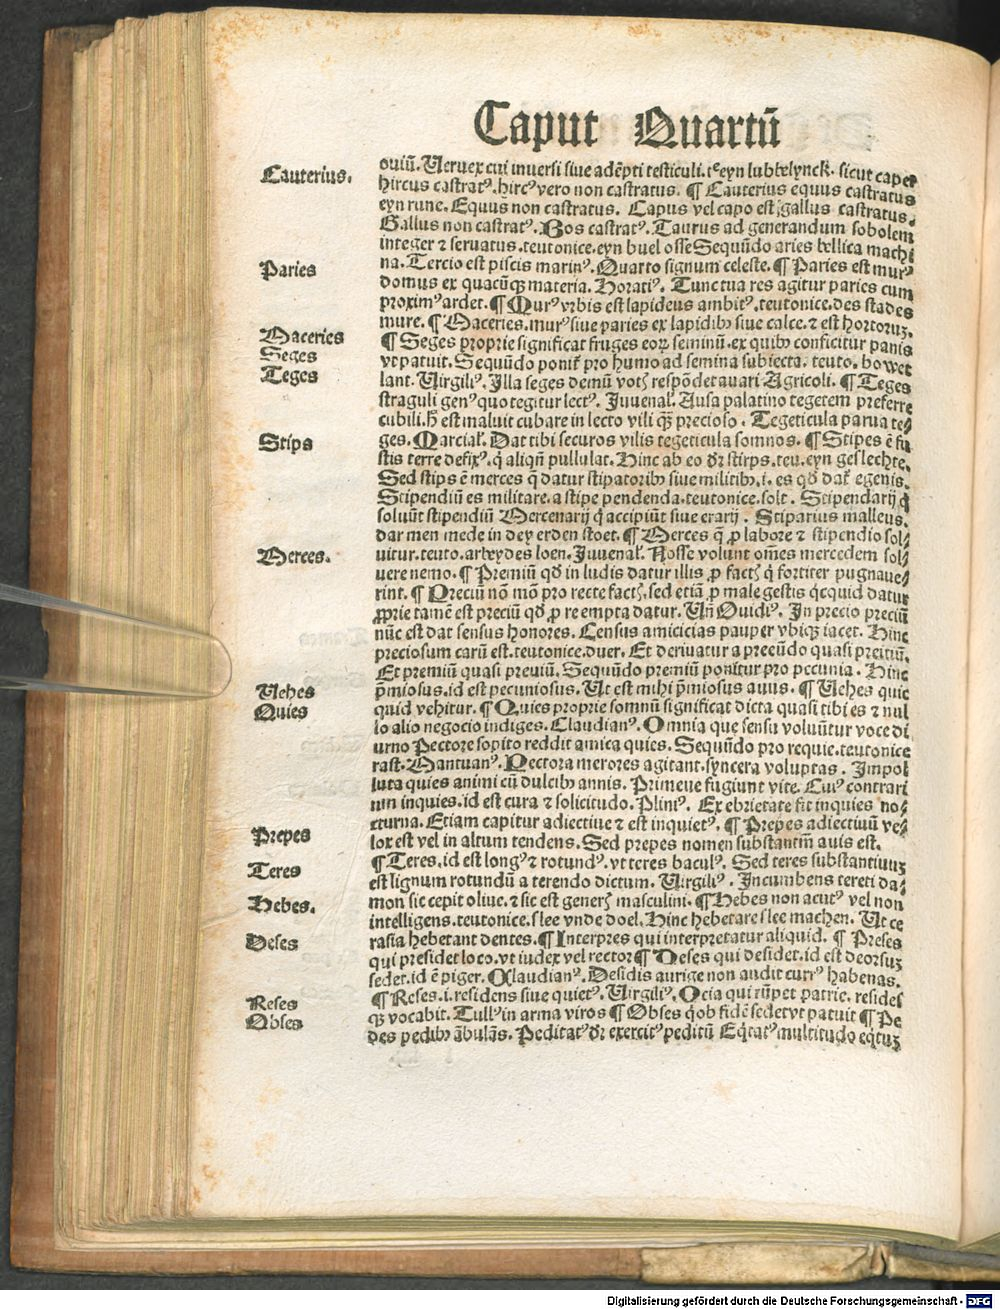 Caput Quartū
ouiū. Veruex cui inuersi siue adēpti testiculi. tᵉ eyn lubbelynck. sicut caper
Cauterius. hircus castratꝰ. hircꝰ vero non castratus. ¶ Cauterius equus castratus
eyn rune. Equus non castratus. Capus vel capo est gallus castratus.
Gallus non castratꝰ. Bos castratꝰ. Taurus ad generandum sobolem
integer ⁊ seruatus. teutonice. eyn buel osse Sequūdo aries bellica machi
Paries na. Tercio est piscis marinꝰ. Quarto signum celeste. ¶ Paries est murꝰ
domus ex quacūqꝫ materia. Horatiꝰ. Tunc tua res agitur paries cum
proximꝰ ardet. ¶ Murꝰ vrbis est lapideus ambitꝰ. teutonice. des stades
mure. ¶ Maceries. murꝰ siue paries ex lapidibꝫ siue calce. ⁊ est hortorꝫ.
Maceries ¶ Seges proprie significat fruges eorꝝ seminū. ex quibꝫ conficitur panis
Seges vt patuit. Sequūdo ponit᷑ pro humo ad semina subiecta. teuto. bowet
Teges lant. Virgiliꝰ. Illa seges demū votꝭ respōdet auari Agricoli. ¶ Teges
straguli genꝰ quo tegitur lectꝰ. Juuenaƚ. Ausa palatino tegetem preferre
cubili. ħ est maluit cubare in lecto vili qꝫ precioso. Tegeticula parua te⸗
Stips ges. Marciaƚ. Dat tibi securos vilis tegeticula somnos. ¶ Stipes ē fu
stis terre defixꝰ. q̇ aliqn̄ pullulat. Hinc ab eo dr̄ stirps. teu. eyn geslechte.
Sed stips ē merces q̄ datur stipatoribꝫ siue militibꝫ. i. es qd̄ dat᷑ egenis.
Stipendiū es militare. a stipe pendenda. teutonice. solt. Stipendarij q̇
soluūt stipendiū Mercenarij q̇ accipiūt siue erarij. Stiparius malleus.
dar men mede in dey erden stoet. ¶ Merces q̄ ꝓ labore ⁊ stipendio sol⸗
Merces. uitur. teuto. arbeydes loen. Juuenaƚ. Nosse volunt om̄es mercedem sol⸗
uere nemo. ¶ Premiū qd̄ in ludis datur illis ꝓ factꝭ q̇ fortiter pugnaue⸗
rint. ¶ Preciū nō mō pro recte factꝭ, sed etiā ꝓ male gestis q̇cquid datur
ꝓprie tamē est preciū qd̄ ꝓ re empta datur. Vn̄ Ouidiꝰ. In precio preciū
nūc est dat sensus honores. Census amicicias pauper vbiqꝫ iacet. Hinc
preciosum carū est. teutonice. duer. Et deriuatur a precūdo quasi preitiū.
Et premiū quasi preuiū. Sequūdo premiū ponitur pro pecunia. Hinc
Vehes p̄miosus. id est pecuniosus. Vt est mihi p̄miosus auus. ¶ Vehes quic
Quies quid vehitur. ¶ Quies proprie somnū significat dicta quasi tibi es ⁊ nul
lo alio negocio indiges. Claudianꝰ. Omnia que sensu voluūtur voce di
urno Pectore sopito reddit amica quies. Sequūdo pro requie. teutonice
rast. Mantuanꝰ. Pectora merores agitant. syncera voluptas. Impol
luta quies animi cū dulcibꝫ annis. Primeue fugiunt vite. Cuiꝰ contrari
um inquies. id est cura ⁊ solicitudo. Pliniꝰ. Ex ebrietate fit inquies no⸗
cturna. Etiam capitur adiectiue ⁊ est inquietꝰ. ¶ Prepes adiectiuū ve⸗
Prepes lox est vel in altum tendens. Sed prepes nomen substantīm auis est.
¶ Teres. id est longꝰ ⁊ rotundꝰ. vt teres baculꝰ. Sed teres substantiuuꝫ
Teres est lignum rotundū a terendo dictum. Virgiliꝰ. Incumbens tereti da⸗
mon sic cepit oliue. ⁊ sic est generꝭ masculini. ¶ Hebes non acutꝰ vel non
Hebes. intelligens. teutonice. slee vnde doel. Hinc hebetare slee machen. Vt ce
Deses rasia hebetant dentes. ¶ Interpres qui interpretatur aliquid. ¶ Preses
qui presidet loco. vt iudex vel rector ¶ Deses qui desidet. id est deorsuꝫ
sedet. id ē piger. Claudianꝰ. Desidis aurige non audit currꝰ habenas.
Reses ¶ Reses. i. residens siue quietꝰ. Virgiliꝰ. Ocia qui rūpet patrie. resides
Obses qꝫ vocabit. Tullꝰ in arma viros ¶ Obses q̇ ob fidē sedet vt patuit ¶ Pe
des pedibꝫ ābulās. Peditatꝰ dr̄ exercitꝰ peditū Eq̇tatꝰ multitudo eq̇tuꝫ
Digitalisierung gefördert durch die Deutsche Forschungsgemeinschaft - DFG